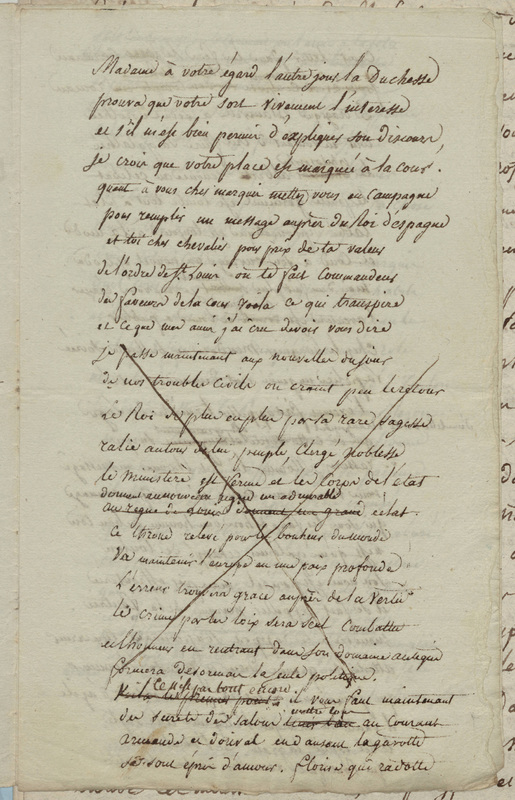 Madame à votre égard l'autre jour la Duchesse
prouva que votre sort vivement l'interesse
et s'il m'est bien permis d'expliquer son discours
je crois que votre place est marquée à la cour.
quant à vous cher marquis mettez vous en campagne
pour remplir un message auprès du Roi d'espagne
et toi cher chevalier pour prix de ta valeur
de l'ordre de St. Louis on te fait commandeur
des faveurs de la cour voila ce qui transpire
et ce que mes amis j'ai cru devoir vous dire
je passe maintenant aux nouvelles du jour
de nos trouble civils on craint peu le retour
le Roi de plus en plus par sa rare sagesse
ralie autour de lui peuple, Clergé noblesse
le ministère est ferme et les Corps de l'état
donnent au nouveau regne un admirable
au regne de donnent un grand éclat.
ce throne relevé pour le bonheur du monde
Va maintenir l'europe en une paix profonde
L'erreur trouvera grace auprès de la Vertu
le crime par les loix sera seul Combattu
et l'honneur en rentrant dans son domaine antique
formera desormais la seule politique.
Ce n'est pas tout encore.
il vous faut maintenant
notre ton
des sureté des salons au Courant
armande et dorval en dansant la gavotte
se sont epris d'amour. Eloise qui radotte